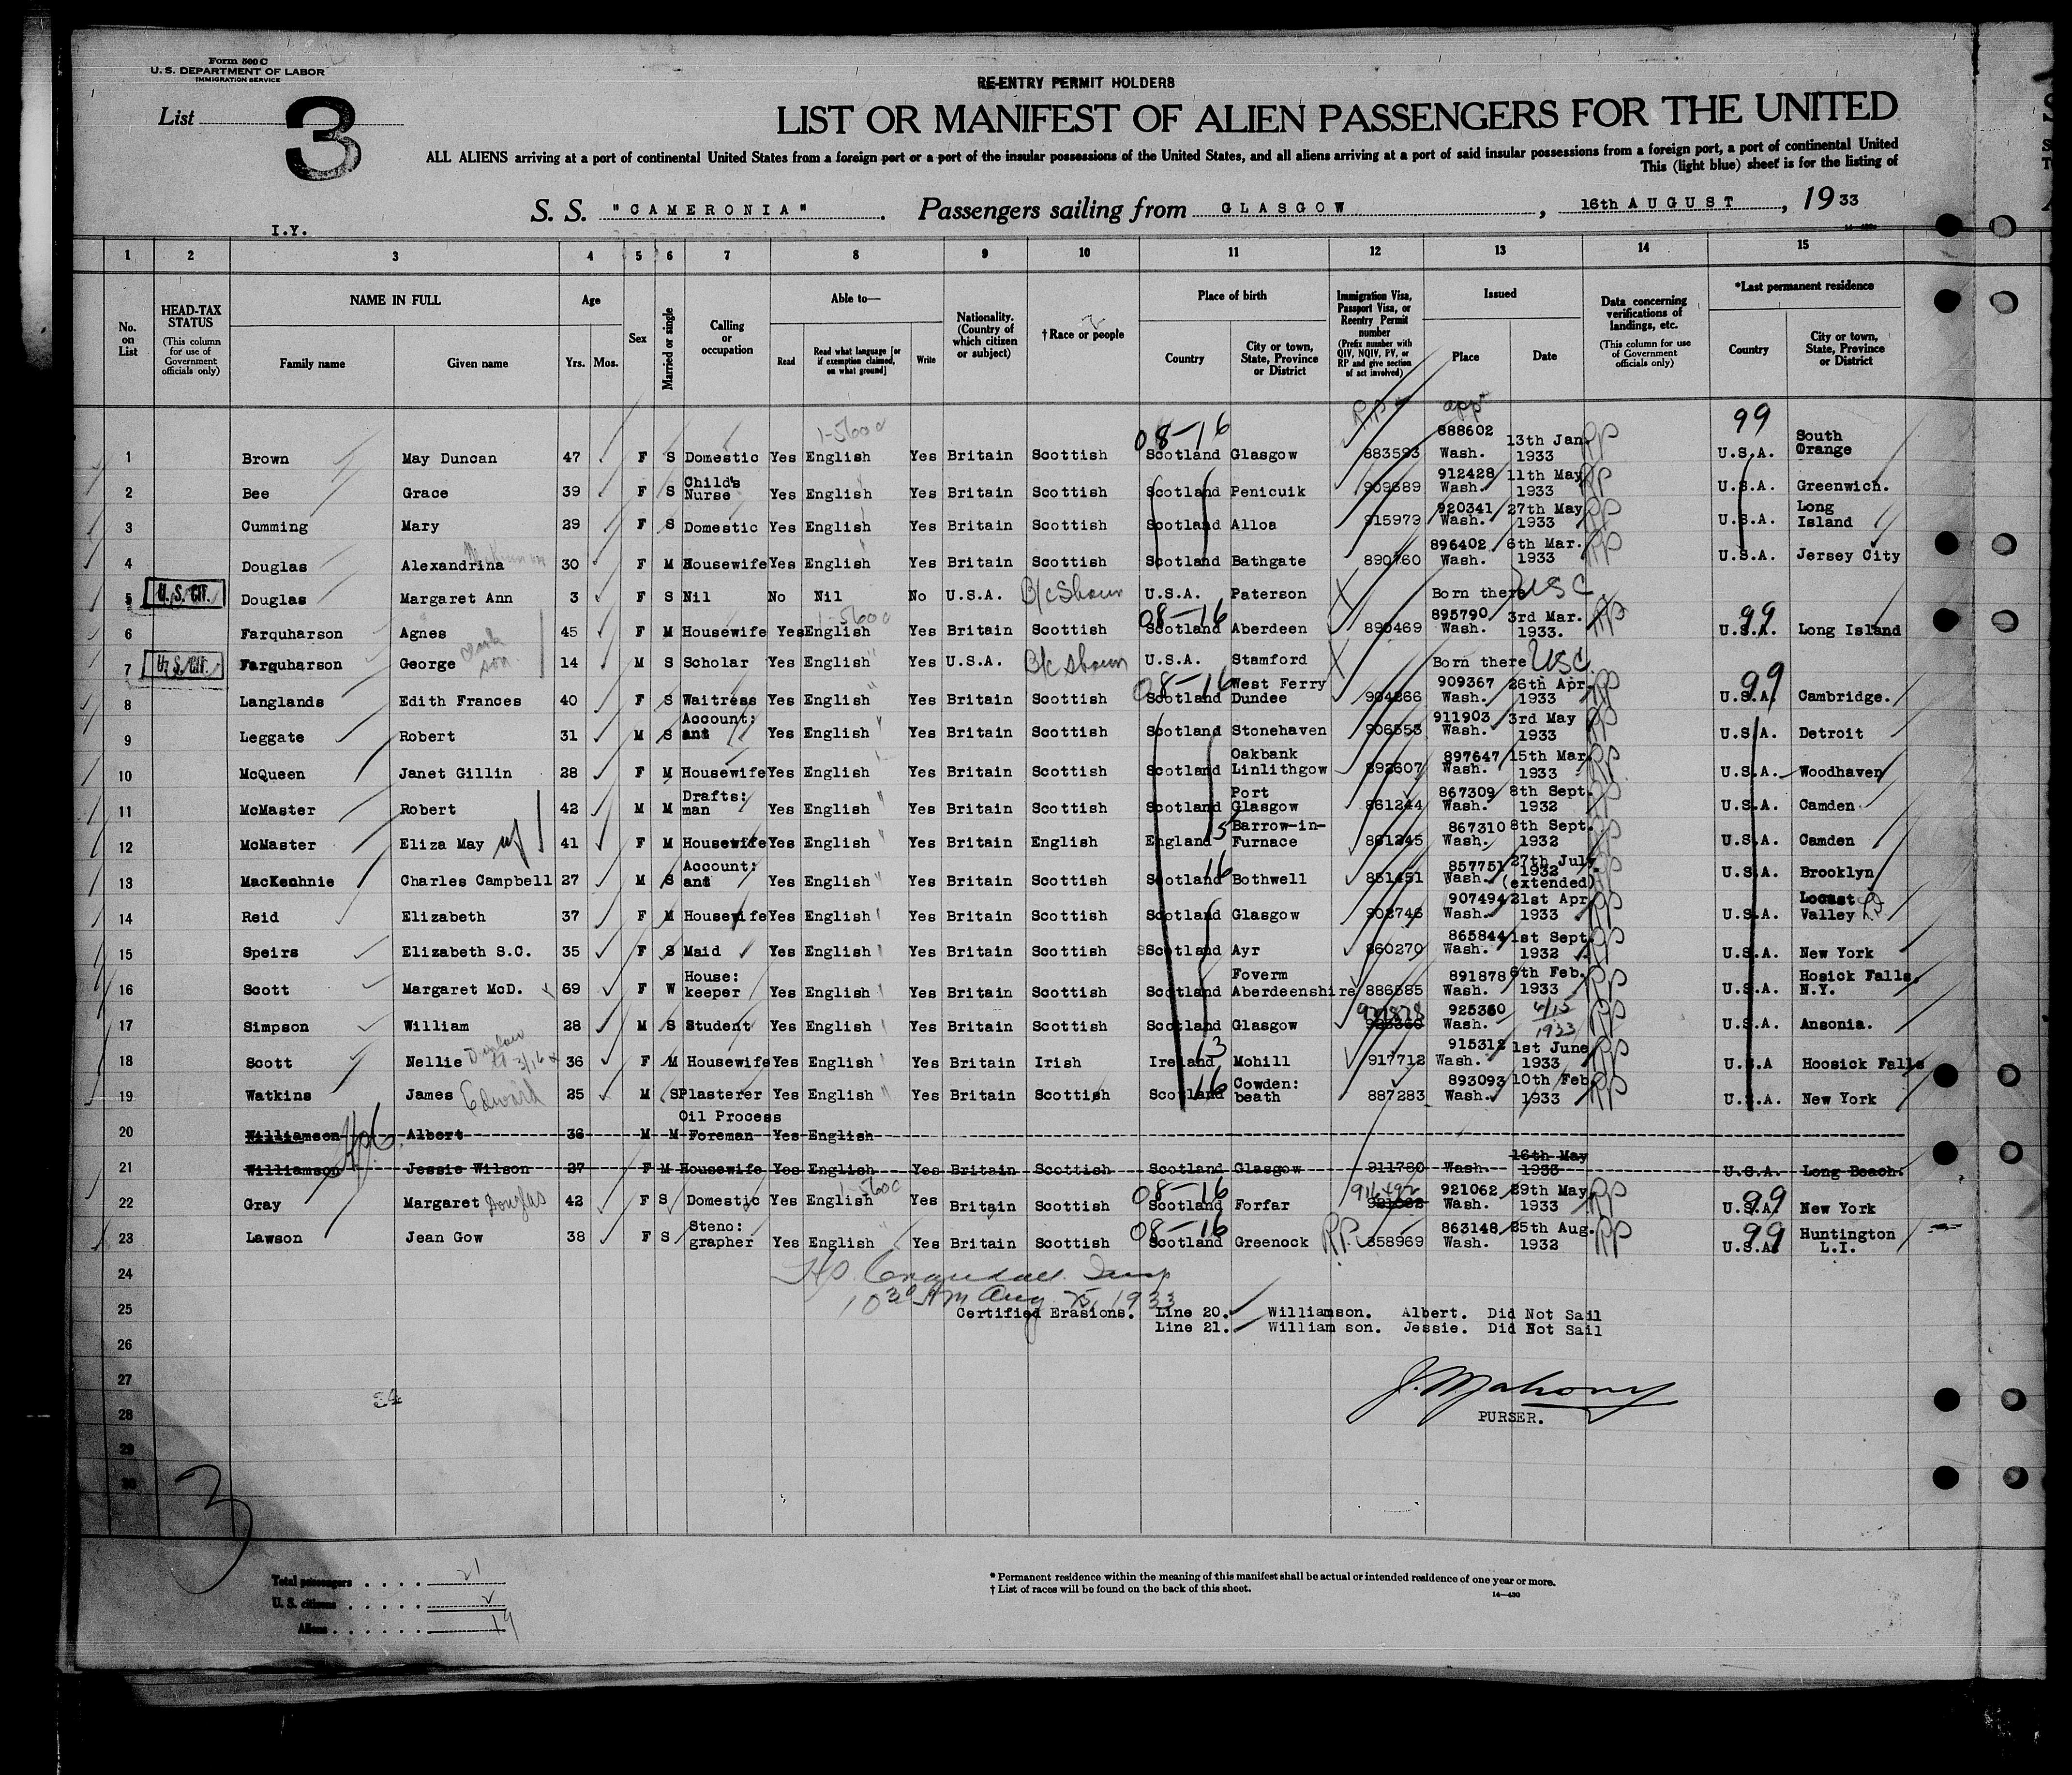 Form 500 C
U. S. DEPARTMENT OF LABOR
IMMIGRATION SERVICE
RE-ENTRY PERMIT HOLDERS
List 3
LIST OR MANIFEST OF ALIEN PASSENGERS FOR THE UNITED
ALL ALIENS arriving at a port of continental United States from a foreign port or a port of the insular possessions of the United States, and all aliens arriving at a port of said insular possessions from a foreign port, a port of continental United
This (light blue) sheet is for the listing of
S. S. "CAMERONIA". Passengers sailing from GLASGOW, 16th AUGUST, 1933
I.Y.
1 2 3 4 5 6 7 8 9 10 11 12 13 14 15
No. on List
HEAD-TAX STATUS (This column for use of Government officials only)
NAME IN FULL Family name Given name
Age Yrs. Mos.
Sex
Married or single
Calling or occupation
Able to— Read Read what language [or if exemption claimed, on what ground] Write
Nationality. (Country of which citizen or subject)
† Race or people
Place of birth Country City or town, State, Province or District
Immigration Visa, Passport Visa, or Reentry Permit number (Prefix number with QIV, NQIV, PV, or RP and give section of act involved)
Issued Place Date
Data concerning verifications of landings, etc. (This column for use of Government officials only)
*Last permanent residence Country City or town, State, Province or District
1 Brown May Duncan 47 F S Domestic Yes English Yes Britain Scottish 08-16 Scotland Glasgow 883593 888602 Wash. 13th Jan 1933 RP 99 U.S.A. South Orange
2 Bee Grace 39 F S Child's Nurse Yes English Yes Britain Scottish Scotland Penicuik 909689 912428 Wash. 11th May 1933 RP U.S.A. Greenwich.
3 Cumming Mary 29 F S Domestic Yes English Yes Britain Scottish Scotland Alloa 915979 920341 Wash. 27th May 1933 RP U.S.A. Long Island
4 Douglas Alexandrina 30 F M Housewife Yes English Yes Britain Scottish Scotland Bathgate 890760 896402 Wash. 6th Mar. 1933 RP U.S.A. Jersey City
5 U.S. CIT. Douglas Margaret Ann 3 F S Nil No Nil No U.S.A. B/c Shown U.S.A. Paterson Born there USC
6 Farquharson Agnes 45 F M Housewife Yes English Yes Britain Scottish 08-16 Scotland Aberdeen 890469 895790 Wash. 3rd Mar. 1933. RP 99 U.S.A. Long Island
7 U.S. CIT. Farquharson George son. 14 M S Scholar Yes English Yes U.S.A. B/c Shown U.S.A. Stamford Born there USC
8 Langlands Edith Frances 40 F S Waitress Yes English Yes Britain Scottish 08-16 Scotland West Ferry Dundee 904266 909367 Wash. 26th Apr. 1933 RP 99 U.S.A. Cambridge.
9 Leggate Robert 31 M S Account: ant Yes English Yes Britain Scottish Scotland Stonehaven 906553 911903 Wash. 3rd May 1933 RP U.S.A. Detroit
10 McQueen Janet Gillin 28 F M Housewife Yes English Yes Britain Scottish Scotland Oakbank Linlithgow 892607 897647 Wash. 15th Mar. 1933 RP U.S.A. Woodhaven
11 McMaster Robert 42 M M Drafts: man Yes English Yes Britain Scottish Scotland Port Glasgow 861244 867309 Wash. 8th Sept. 1932 RP U.S.A. Camden
12 McMaster Eliza May wf 41 F M Housewife Yes English Yes Britain English England 15 Barrow-in-Furnace 861245 867310 Wash. 8th Sept. 1932 RP U.S.A. Camden
13 MacKechnie Charles Campbell 27 M S Account: ant Yes English Yes Britain Scottish Scotland 16 Bothwell 851451 857751 Wash. 27th July 1932 (extended) RP U.S.A. Brooklyn
14 Reid Elizabeth 37 F M Housewife Yes English Yes Britain Scottish Scotland Glasgow 902746 907494 Wash. 21st Apr 1933 RP U.S.A. Locust Valley
15 Speirs Elizabeth S.C. 35 F S Maid Yes English Yes Britain Scottish Scotland Ayr 860270 865844 Wash. 1st Sept. 1932 RP U.S.A. New York
16 Scott Margaret McD. 69 F W House: keeper Yes English Yes Britain Scottish Scotland Foverm Aberdeenshire 886585 891878 Wash. 6th Feb. 1933 RP U.S.A. Hosick Falls, N.Y.
17 Simpson William 28 M S Student Yes English Yes Britain Scottish Scotland Glasgow 925360 925360 Wash. 6/15 1933 RP U.S.A. Ansonia.
18 Scott Nellie 36 F M Housewife Yes English Yes Britain Irish Ireland 13 Mohill 917712 915312 Wash. 1st June 1933 RP U.S.A Hoosick Falls
19 Watkins James Edward 25 M S Plasterer Yes English Yes Britain Scottish Scotland 16 Cowden: beath 887283 893093 Wash. 10th Feb. 1933 RP U.S.A. New York
20 Williamson Albert 36 M M Oil Process Foreman Yes English
21 Williamson Jessie Wilson 27 F M Housewife Yes English Yes Britain Scottish Scotland Glasgow 911780 Wash. 16th May 1933 U.S.A. Long Beach.
22 Gray Margaret Douglas 42 F S Domestic Yes English 1-5600 Yes Britain Scottish 08-16 Scotland Forfar 916492 921062 921062 Wash. 29th May 1933 RP 99 U.S.A. New York
23 Lawson Jean Gow 38 F S Steno: grapher Yes English Yes Britain Scottish 08-16 Scotland Greenock RP 858969 863148 Wash. 25th Aug. 1932 RP 99 U.S.A. Huntington L.I.
24
10 30 AM Aug 25, 1933
25 Certified Erasions. Line 20. Williamson. Albert. Did Not Sail
Line 21. William son. Jessie. Did Not Sail
26
27
J. Mahony
28 PURSER.
29
30
3
Total passengers 21
U. S. citizens 2
Aliens 19
* Permanent residence within the meaning of this manifest shall be actual or intended residence of one year or more.
† List of races will be found on the back of this sheet.
14—430